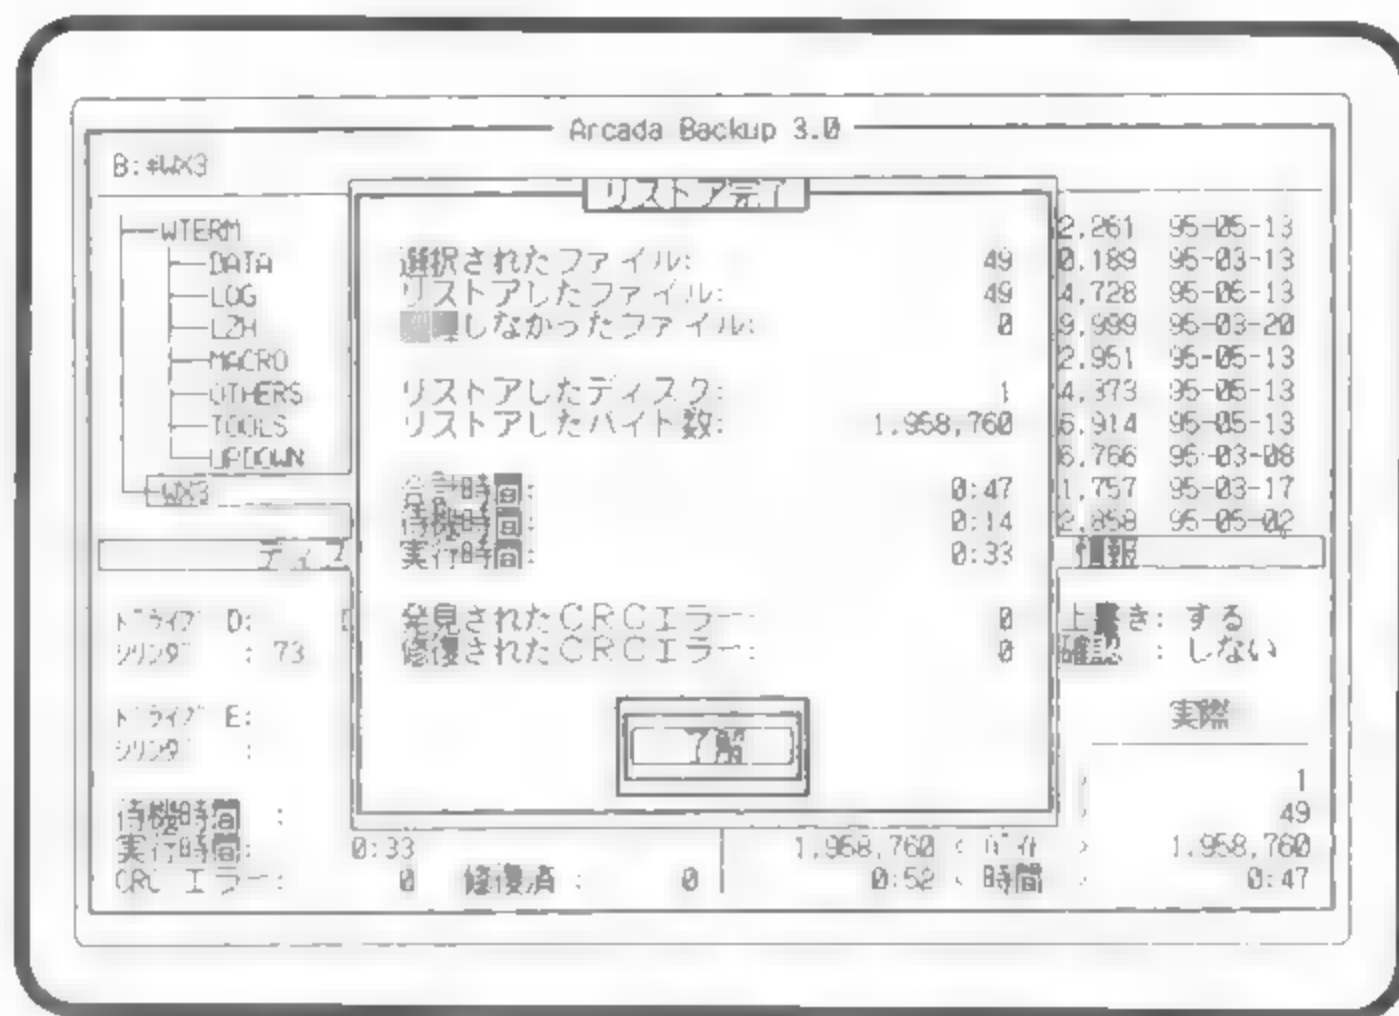 Arcada Backup 3.0
B:¥WX3
WTERM
DATA
LOG
LZH
MACRO
OTHERS
TOOLS
UPDOWN
WX3
リストア完了
選択されたファイル: 49
リストアしたファイル: 49
処理しなかったファイル: 0
リストアしたディスク: 1
リストアしたバイト数: 1,958,760
合計時間: 0:47
待機時間: 0:14
実行時間: 0:33
発見されたCRCエラー: 0
修復されたCRCエラー: 0
了解
2,261 95-05-13
0,189 95-03-13
4,728 95-05-13
9,999 95-03-20
2,951 95-05-13
4,373 95-05-13
6,914 95-05-13
6,766 95-03-08
1,757 95-03-17
2,858 95-05-02
ディス
情報
ドライブ D:
シリンダ : 73
ドライブ E:
シリンダ :
上書き: する
確認 : しない
実際
1
49
待機時間 :
実行時間: 0:33
1,958,760 < バイト > 1,958,760
CRC エラー: 0 修復済: 0
0:52 < 時間 > 0:47